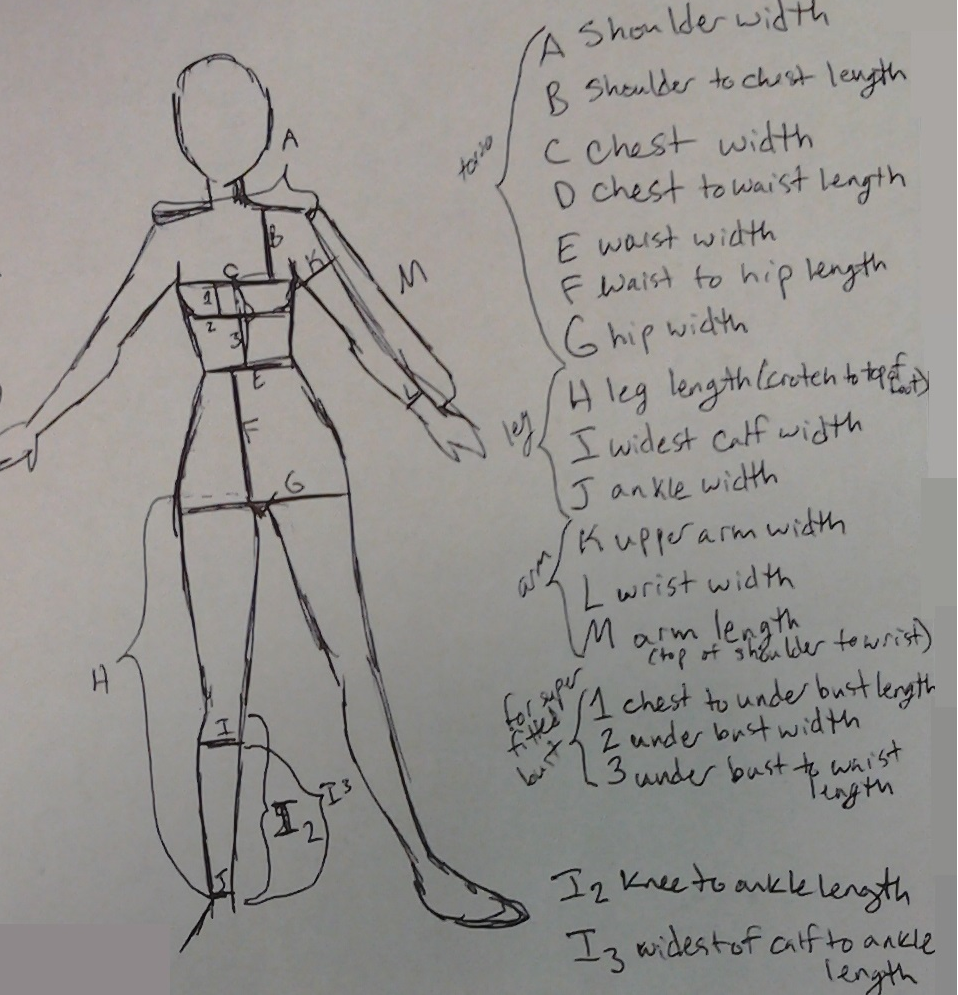 A
B
C
K
M
1
2
3
L
E
F
G
H
I
I2
I3
J
torso
A Shoulder width
B shoulder to chest length
C chest width
D chest to waist length
E waist width
F waist to hip length
G hip width
leg
H leg length (crotch to top of foot)
I widest calf width
J ankle width
arm
K upper arm width
L wrist width
M arm length
(top of shoulder to wrist)
for super
fitted
bust
1 chest to under bust length
2 under bust width
3 under bust to waist
length
I2 knee to ankle length
I3 widest of calf to ankle
length